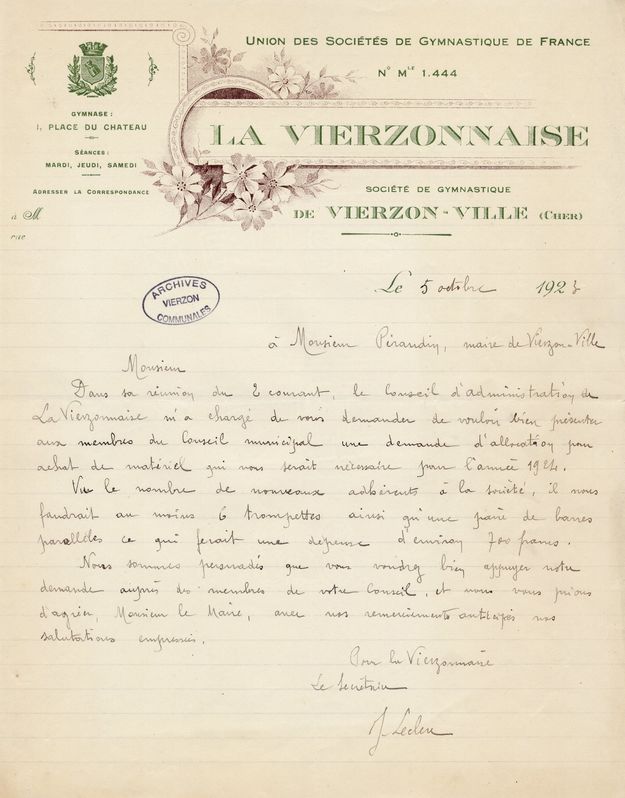 UNION DES SOCIÉTÉS DE GYMNASTIQUE DE FRANCE
N° MLE 1.444
GYMNASE :
1, PLACE DU CHATEAU
SÉANCES :
MARDI, JEUDI, SAMEDI
ADRESSER LA CORRESPONDANCE
à M
rue
LA VIERZONNAISE
SOCIÉTÉ DE GYMNASTIQUE
DE VIERZON-VILLE (CHER)
ARCHIVES
VIERZON
COMMUNALES
Le 5 octobre 1923
à Monsieur Pérandin, maire de Vierzon-Ville
Monsieur
Dans sa réunion du 2 courant, le Conseil d'administration de
La Vierzonnaise m'a chargé de vous demander de vouloir bien présenter
aux membres du Conseil municipal une demande d'allocation pour
achat de matériel qui nous serait nécessaire pour l'année 1924.
Vu le nombre de nouveaux adhérents à la société, il nous
faudrait au moins 6 trompettes ainsi qu'une paire de barres
parallèles ce qui ferait une dépense d'environ 700 francs.
Nous sommes persuadés que vous voudrez bien appuyer notre
demande auprès des membres de votre Conseil, et nous vous prions
d'agréer, Monsieur le Maire, avec nos remerciements anticipés nos
salutations empressées.
Pour la Vierzonnaise
Le Secrétaire
J. Leclerc